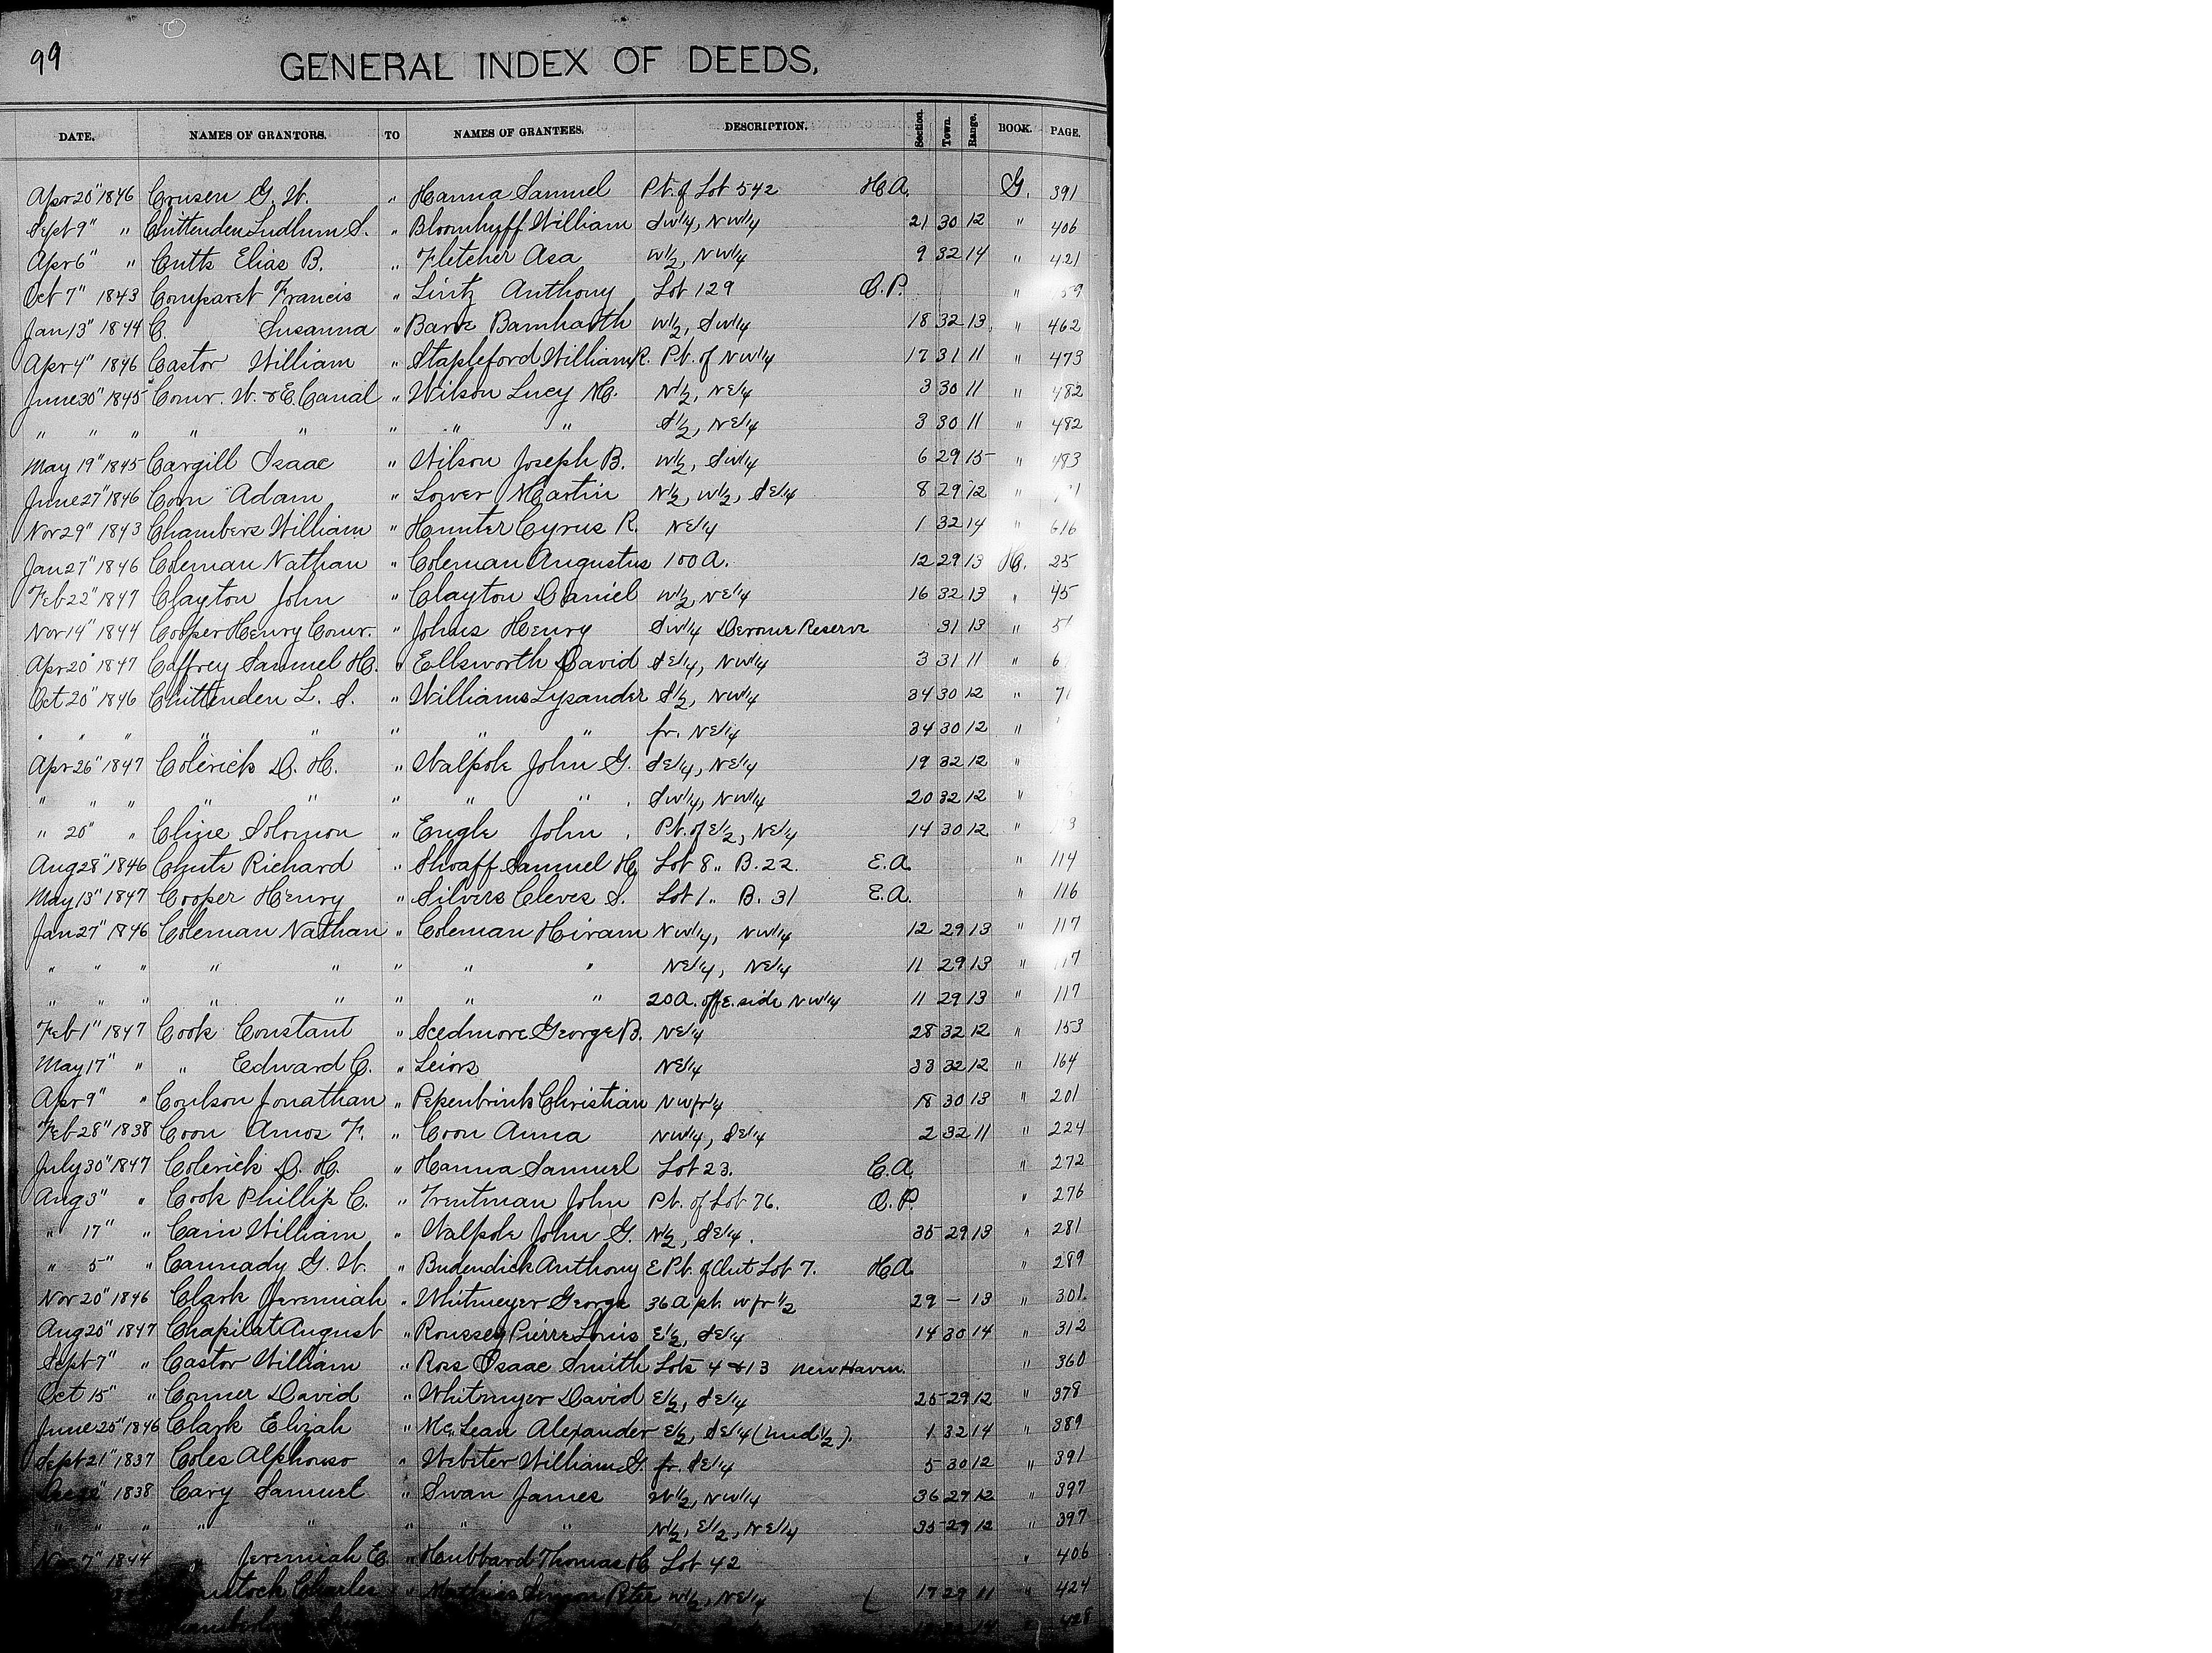 99
GENERAL INDEX OF DEEDS.
DATE. NAMES OF GRANTORS. TO NAMES OF GRANTEES. DESCRIPTION. Section. Town. Range. BOOK. PAGE.
Apr 20" 1846 Crusen G. W. " Hanna Samuel Pt. of Lot 542 H.A. G. 391
Sept 9" " Chittenden Ludlum S. " Bloomhyff William Sw1/4, Nw1/4 21 30 12 " 406
Apr 6" " Cutts Elias B. " Fletcher Asa W1/2, Nw1/4 9 32 14 " 421
Oct 7" 1843 Comparet Francis " Lintz Anthony Lot 129 O.P. " 59
Jan 13" 1844 C. Susanna " Barve Barnharth W1/2, Sw1/4 18 32 13 " 462
Apr 4" 1846 Castor William " Stapleford William R. Pt. of Nw1/4 17 31 11 " 473
June 30" 1845 Comr. W. & E. Canal " Wilson Lucy M. N1/2, NE1/4 3 30 11 " 482
" " " " " " " " S1/2, NE1/4 3 30 11 " 482
May 19" 1845 Cargill Isaac " Wilson Joseph B. W1/2, Sw1/4 6 29 15 " 483
June 27" 1846 Coon Adam " Lower Martin N1/2, W1/2, SE1/4 8 29 12 "
Nov 29" 1843 Chambers William " Hunter Cyrus R. NE1/4 1 32 14 " 616
Jan 27" 1846 Coleman Nathan " Coleman Augustus 100 A. 12 29 13 H. 25
Feb 22" 1847 Clayton John " Clayton Daniel W1/2, NE1/4 16 32 13 " 45
Nov 14" 1844 Cooper Henry Comr. " Johns Henry Sw1/4 Derome Reserve 31 13 " 51
Apr 20" 1847 Caffrey Samuel H. " Ellsworth David SE1/4, Nw1/4 3 31 11 " 6
Oct 20" 1846 Chittenden L. S. " Williams Lysander S1/2, Nw1/4 34 30 12 " 71
" " " " " " " " fr. NE1/4 34 30 12 "
Apr 26" 1847 Colerick D. H. " Walpole John G. SE1/4, NE1/4 19 32 12 "
" " " " " " " " Sw1/4, Nw1/4 20 32 12 "
" 20" " Cline Solomon " Engle John Pt. of E1/2, NE1/4 14 30 12 "
Aug 28" 1846 Chute Richard " Shoaff Samuel H. Lot 8 .. B. 22. E.A. " 114
May 13" 1847 Cooper Henry " Silvers Cleves S. Lot 1 .. B. 31 E.A. " 116
Jan 27" 1846 Coleman Nathan " Coleman Hiram Nw1/4, Nw1/4 12 29 13 " 117
" " " " " " " " NE1/4, NE1/4 11 29 13 " 117
" " " " " " " " 20 A. off E. side Nw1/4 11 29 13 " 117
Feb 1" 1847 Cook Constant " Scedmore George B. NE1/4 28 32 12 " 153
May 17" " " Edward C. " Leiors NE1/4 33 32 12 " 164
Apr 9" " Coulson Jonathan " Pepenbrink Christian Nwfr1/4 18 30 13 " 201
Feb 28" 1838 Coon Amos F. " Coon Anna Nw1/4, SE1/4 2 32 11 " 224
July 30" 1847 Colerick D. H. " Hanna Samuel Lot 23. C.A. " 272
Aug 3" " Cook Phillip C. " Trentman John Pt. of Lot 76. O.P. " 276
" 17" " Cain William " Walpole John G. N1/2, SE1/4. 35 29 13 " 281
" 5" " Cannady G. W. " Budendick Anthony E Pt. of Out Lot 7. H.A. " 289
Nov 20" 1846 Clark Jeremiah " Whitmeyer George 36 A pt. w fr 1/2 29 – 13 " 301.
Aug 20" 1847 Chapilat August " Roussey Pierre Louis E1/2, SE1/4 14 30 14 " 312
Sept 7" " Castor William " Ross Isaac Smith Lots 4 & 13 New Haven. " 360
Oct 15" " Conner David " Whitmyer David E1/2, SE1/4 25 29 12 " 378
June 25" 1846 Clark Elizah " McLean Alexander E1/2, SE1/4 (und 1/2). 1 32 14 " 389
Sept 21" 1837 Coles Alphonso " Webster William G. fr. SE1/4 5 30 12 " 391
1838 Cary Samuel " Swan James W1/2, Nw1/4 36 29 12 " 397
" " " " " " " " N1/2, E1/2, NE1/4 35 29 12 " 397
Nov 7" 1844 " Jeremiah E. " Hubbard Thomas H Lot 42 " 406
Charles " Mathias Simon Peter W1/2, NE1/4 17 29 11 " 424
14 " 428